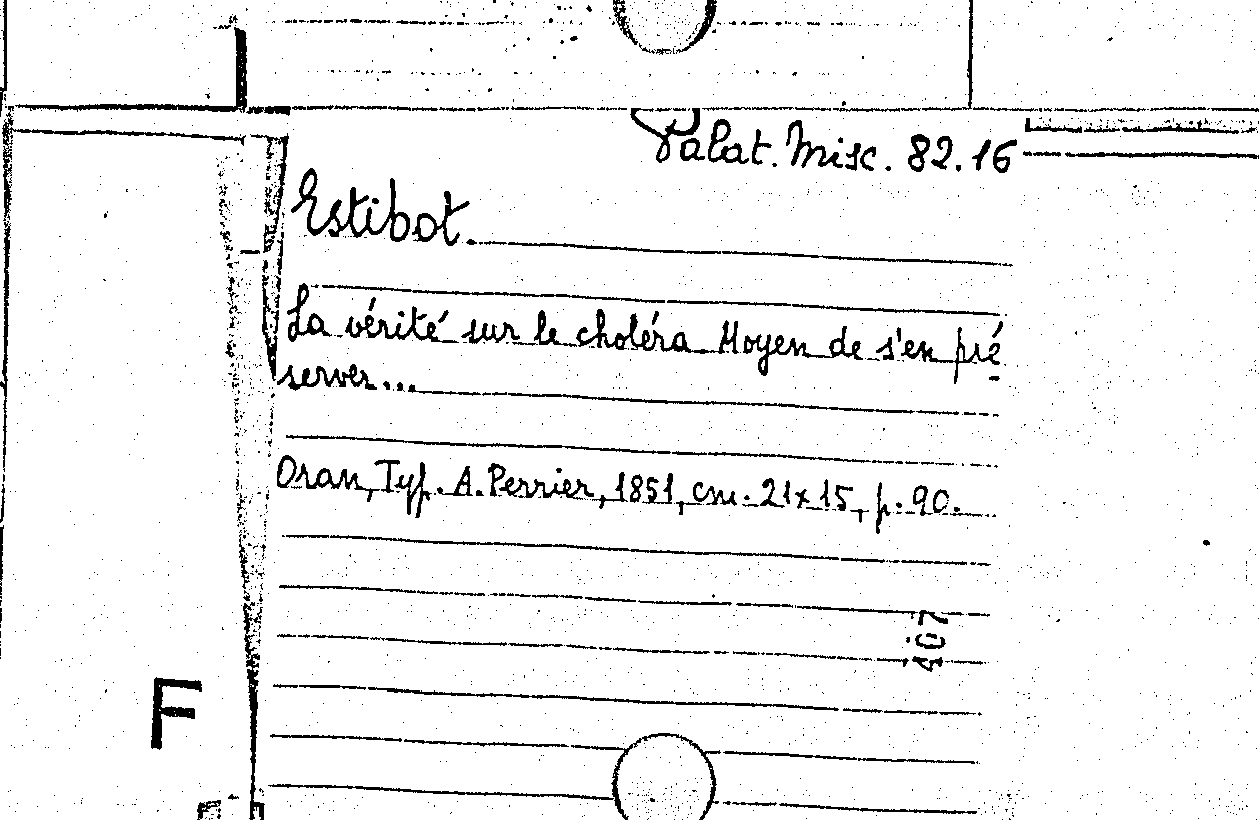 Palat. Misc. 82.16
Estibot.
La vérité sur le choléra Moyen de s'en pré
server...
Oran, Typ. A. Perrier, 1851, cm. 21x15, p. 90.
407
F